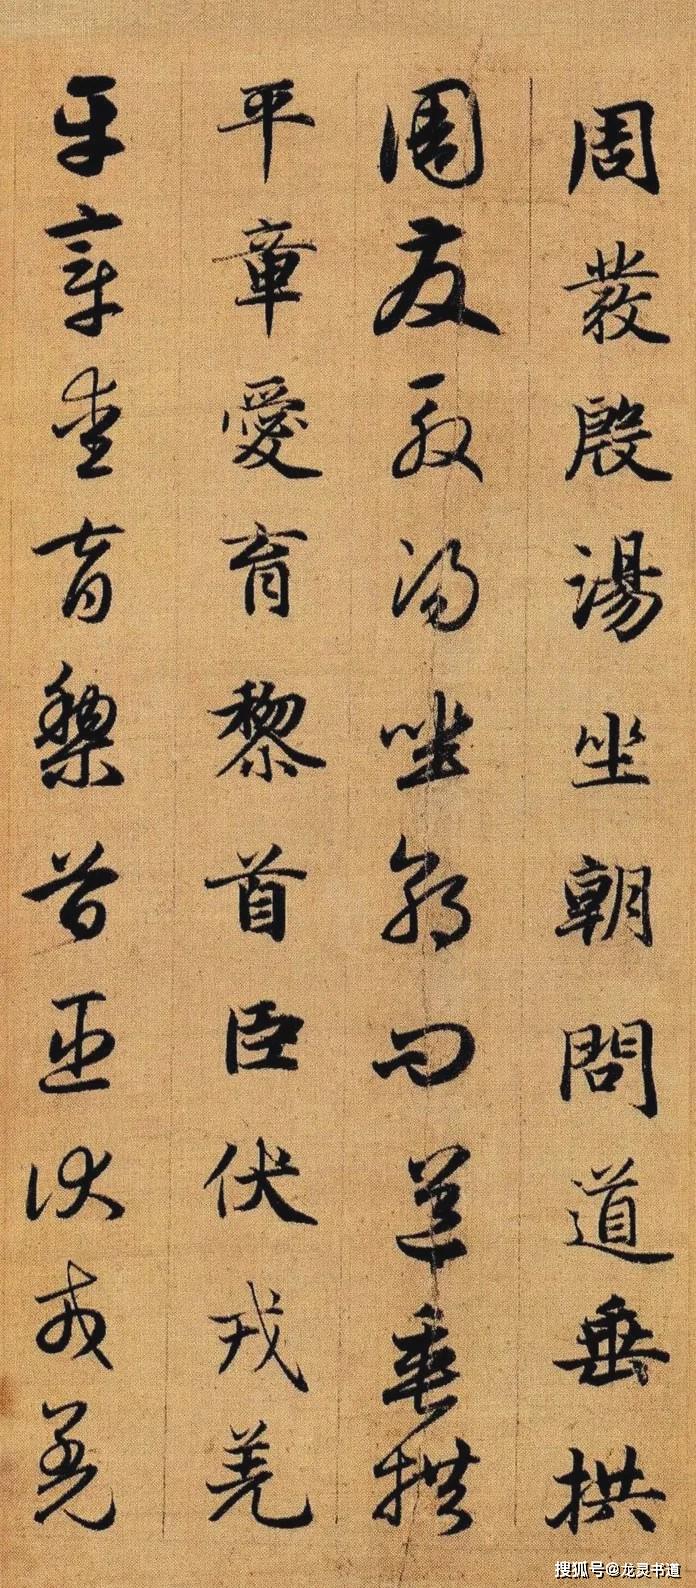 周發殷湯坐朝問道垂拱
周发殷湯坐朝問道垂拱
平章愛育黎首臣伏戎羌
平章愛育黎首臣伏戎羌
搜狐号@龙灵书道